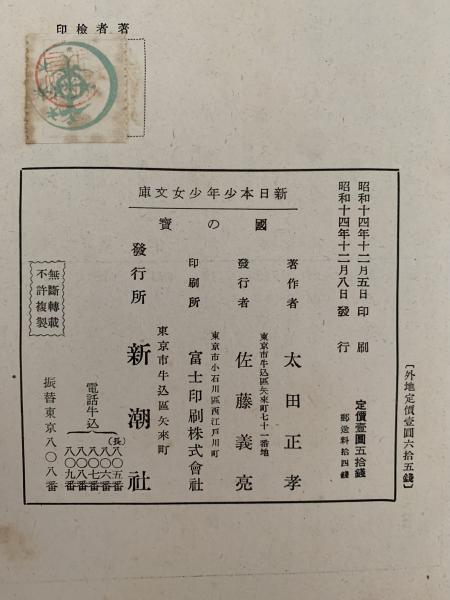 著者檢印
新日本少年少女文庫
國の寶
昭和十四年十二月五日印刷
昭和十四年十二月八日發行
定價壹圓五拾錢
郵送料拾四錢
〔外地定價壹圓六拾五錢〕
著作者 太田正孝
東京市牛込區矢來町七十一番地
發行者 佐藤義亮
東京市小石川區西江戸川町
印刷所 富士印刷株式會社
東京市牛込區矢來町
發行所 新潮社
電話牛込
(長)八〇五番
八〇六番
八〇七番
八〇八番
八〇九番
振替東京八〇八番
無斷轉載
不許複製